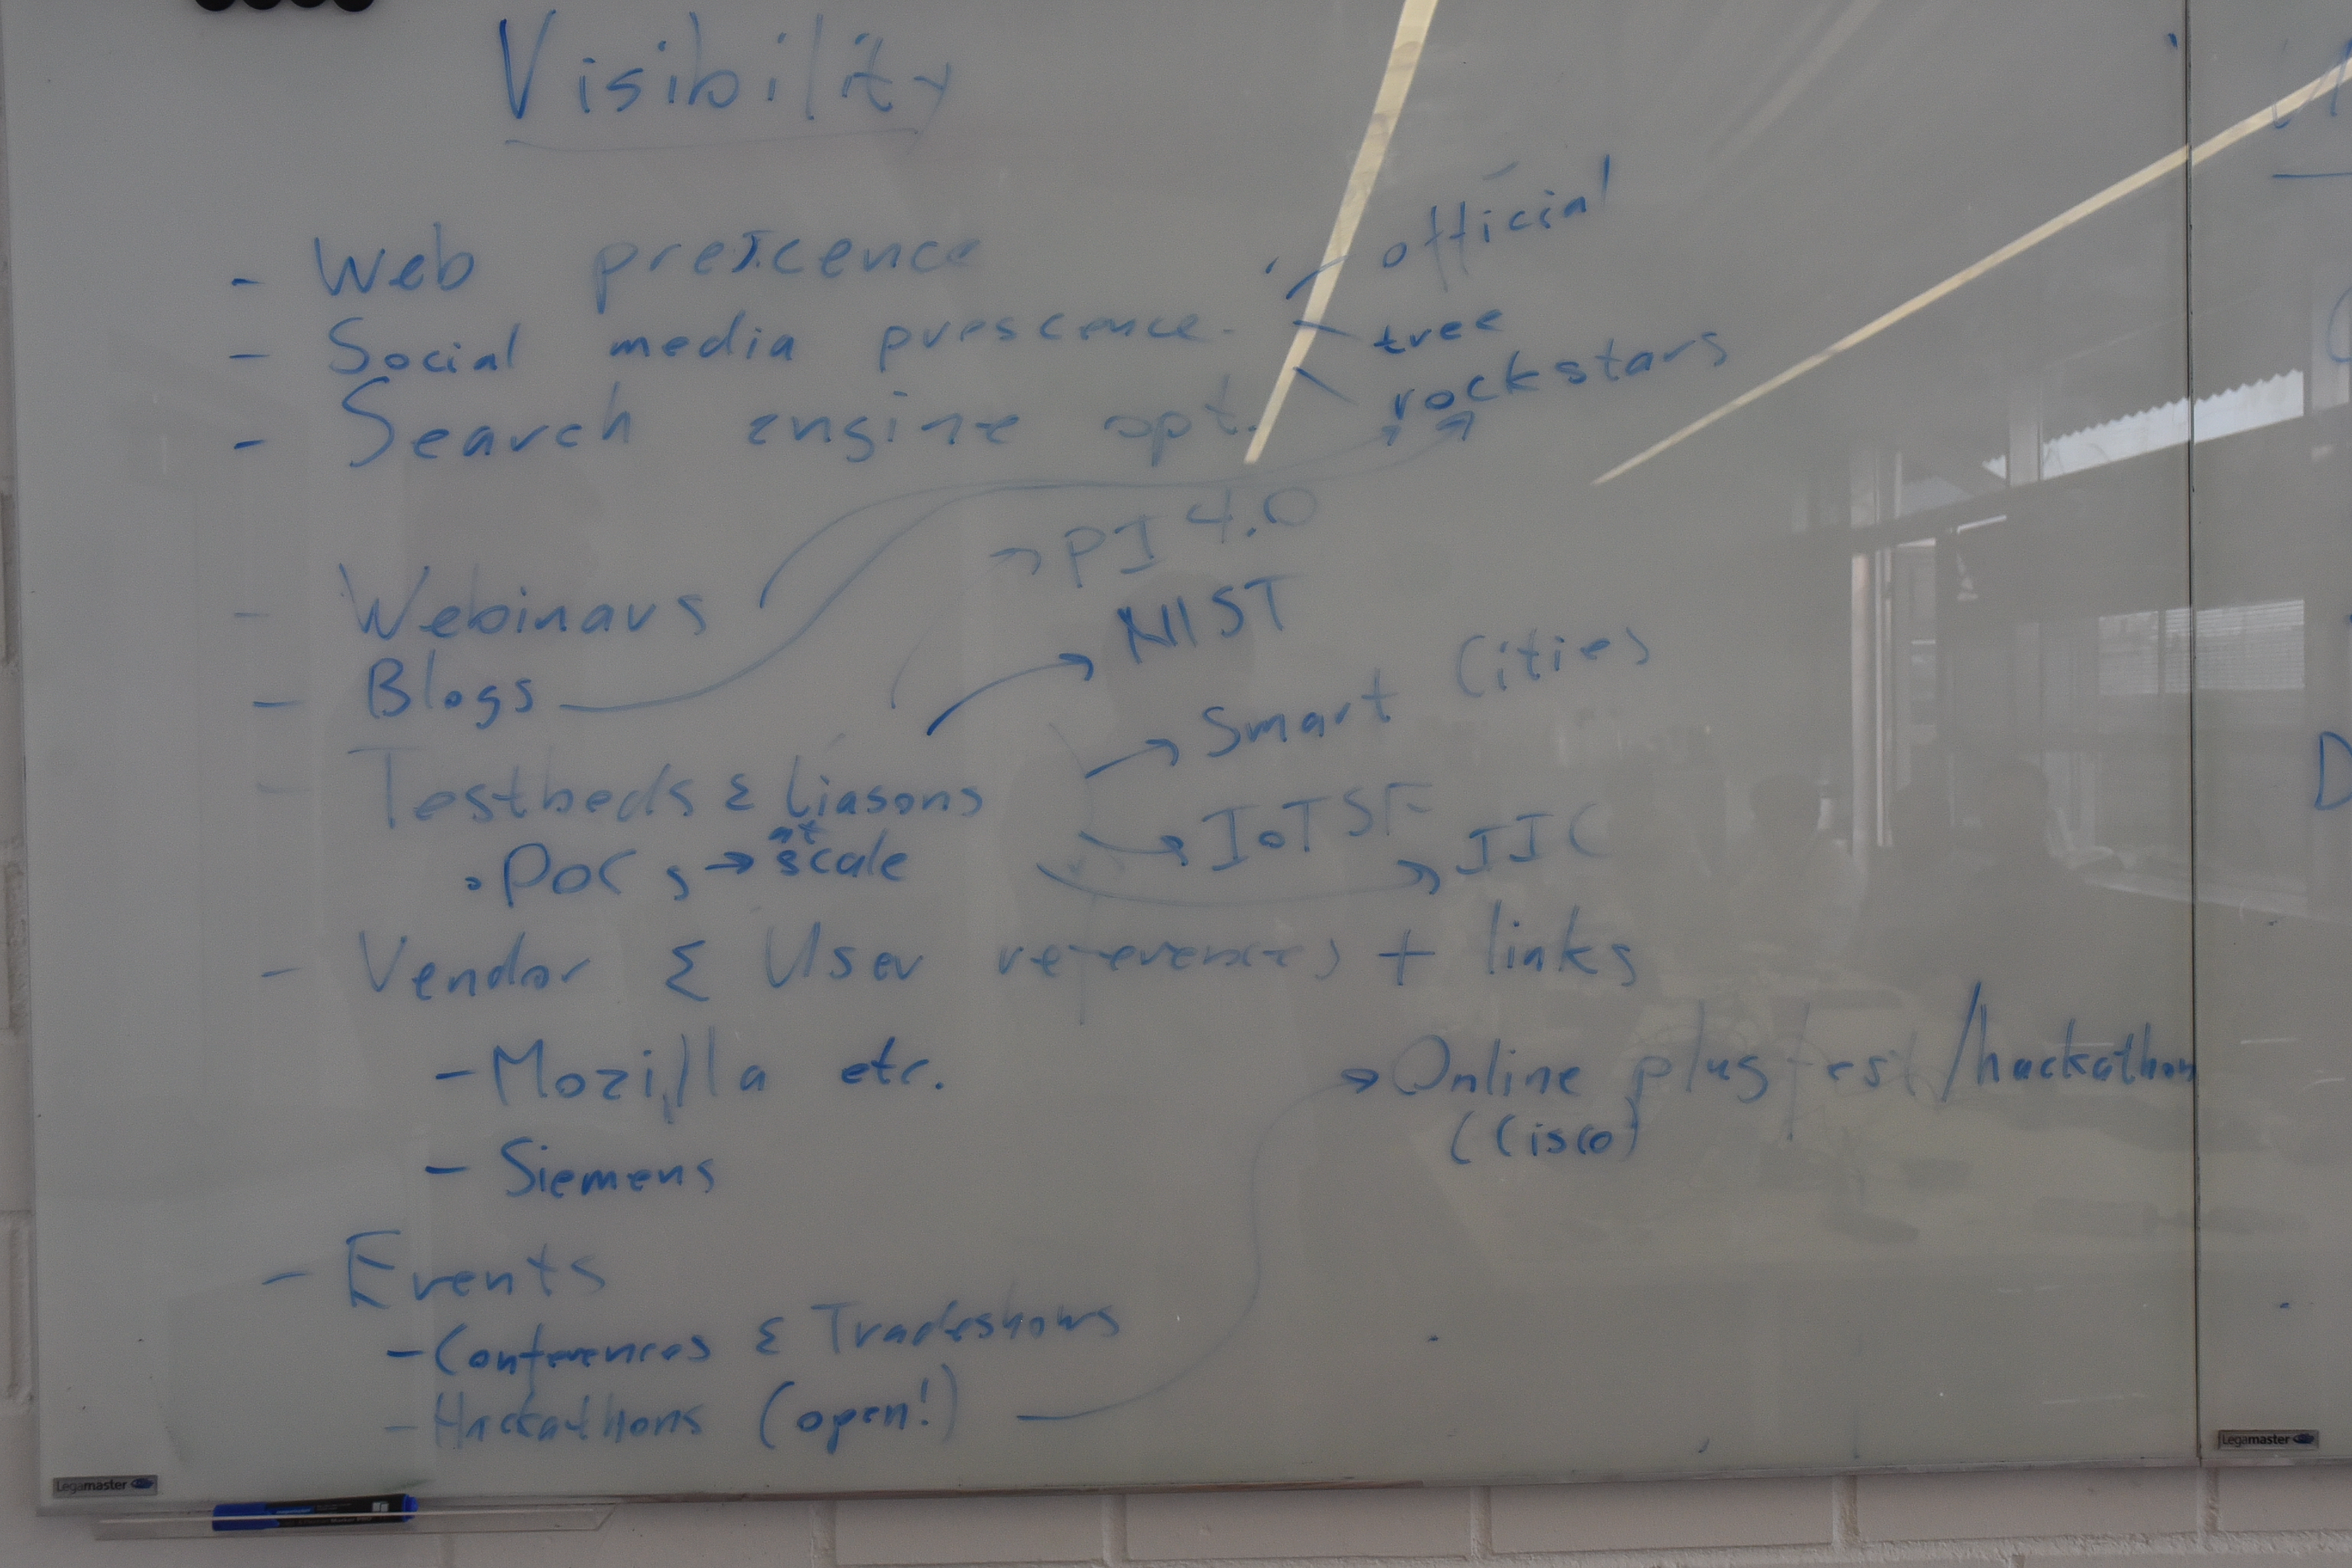 Visibility
- Web prescence
- Social media prescence - official
tree
rockstars
- Search engine opt.
- Webinars
- Blogs
- Testbeds & Liasons
→ PI 4.0
→ NIST
→ Smart Cities
→ IoTSF
→ IIC
• POCs → at scale
- Vendor & User references + links
- Mozilla etc.
- Siemens
- Events
- Conferences & Tradeshows
- Hackathons (open!)
→ Online plugfest/hackathon
(Cisco)
Legamaster
Legamaster